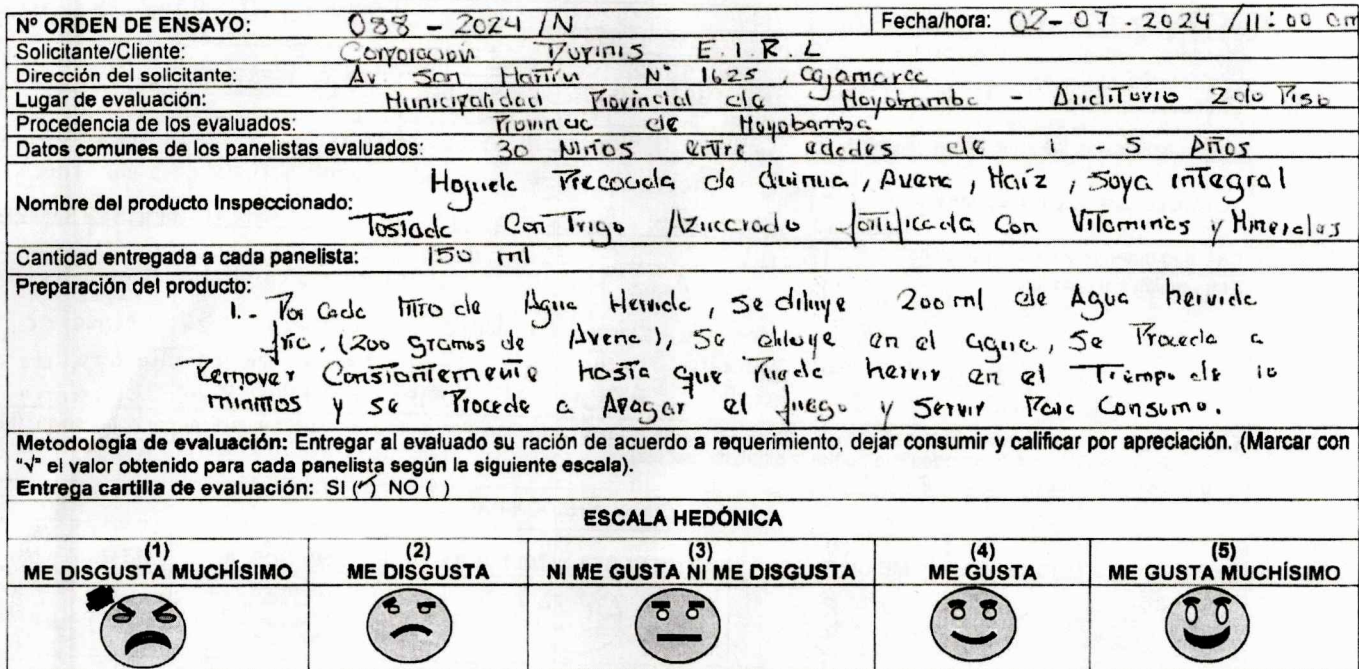 Nº ORDEN DE ENSAYO: 088 - 2024 /N Fecha/hora: 02-07-2024 /11:00 am
Solicitante/Cliente: Corporación Durinis E.I.R.L
Dirección del solicitante: Av. San Martín N° 1625, Cajamarca
Lugar de evaluación: Municipalidad Provincial de Moyobamba - Auditorio 2do Piso
Procedencia de los evaluados: Provincia de Moyobamba
Datos comunes de los panelistas evaluados: 30 Niños entre edades de 1 - 5 Años
Hojuela Precocida de Quinua, Avena, Maíz, Soya integral
Nombre del producto Inspeccionado:
Tostada Con Trigo Azucarado fortificada Con Vitaminas y Minerales
Cantidad entregada a cada panelista: 150 ml
Preparación del producto:
1.- Por Cada litro de Agua Hervida, se diluye 200 ml de Agua hervida
fría. (200 gramos de Avena), Se diluye en el agua, Se Procede a
Remover Constantemente hasta que Pueda hervir en el Tiempo de 10
minutos y se Procede a Apagar el fuego y Servir Para Consumo.
Metodología de evaluación: Entregar al evaluado su ración de acuerdo a requerimiento, dejar consumir y calificar por apreciación. (Marcar con
"√" el valor obtenido para cada panelista según la siguiente escala).
Entrega cartilla de evaluación: SI (✓) NO ( )
ESCALA HEDÓNICA
(1) (2) (3) (4) (5)
ME DISGUSTA MUCHÍSIMO ME DISGUSTA NI ME GUSTA NI ME DISGUSTA ME GUSTA ME GUSTA MUCHÍSIMO